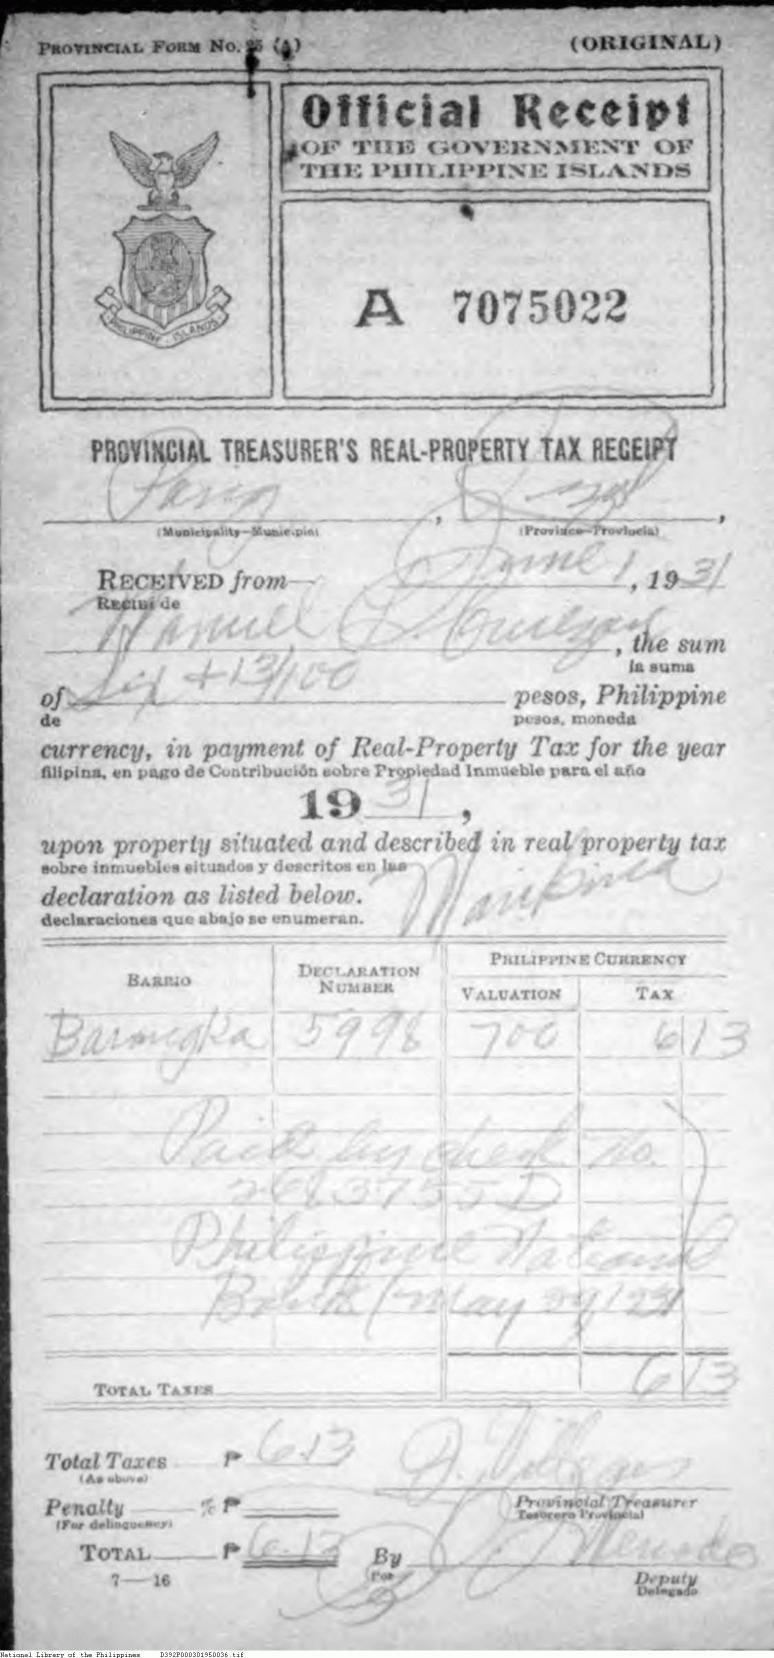 PROVINCIAL FORM NO. 25 (A)
(ORIGINAL)
Official Receipt
OF THE GOVERNMENT OF
THE PHILIPPINE ISLANDS
PHILIPPINE ISLANDS
A 7075022
PROVINCIAL TREASURER'S REAL-PROPERTY TAX RECEIPT
Pasig, Rizal,
(Municipality—Municipio) (Province—Provincia)
June 1, 1931
RECEIVED from
RECIBI de
Manuel L. Quezon, the sum
la suma
of Six + 13/100 pesos, Philippine
de pesos, moneda
currency, in payment of Real-Property Tax for the year
filipina, en pago de Contribución sobre Propiedad Inmueble para el año
1931,
upon property situated and described in real property tax
sobre inmuebles situados y descritos en las
declaration as listed below. Marikina
declaraciones que abajo se enumeran.
BARRIO DECLARATION NUMBER PHILIPPINE CURRENCY
VALUATION TAX
Barangka 5998 700 6 13
Paid by check No.
2683755 D
Philippine National
Bank (May 29/31
TOTAL TAXES 6 13
Total Taxes ₱ 6.13 Villegas
(As above)
Penalty % ₱ Provincial Treasurer
(For delinquency) Tesorero Provincial
TOTAL ₱ 6.13 By
Por
7—16 Deputy
Delegado
National Library of the Philippines D392P000301950036.tif